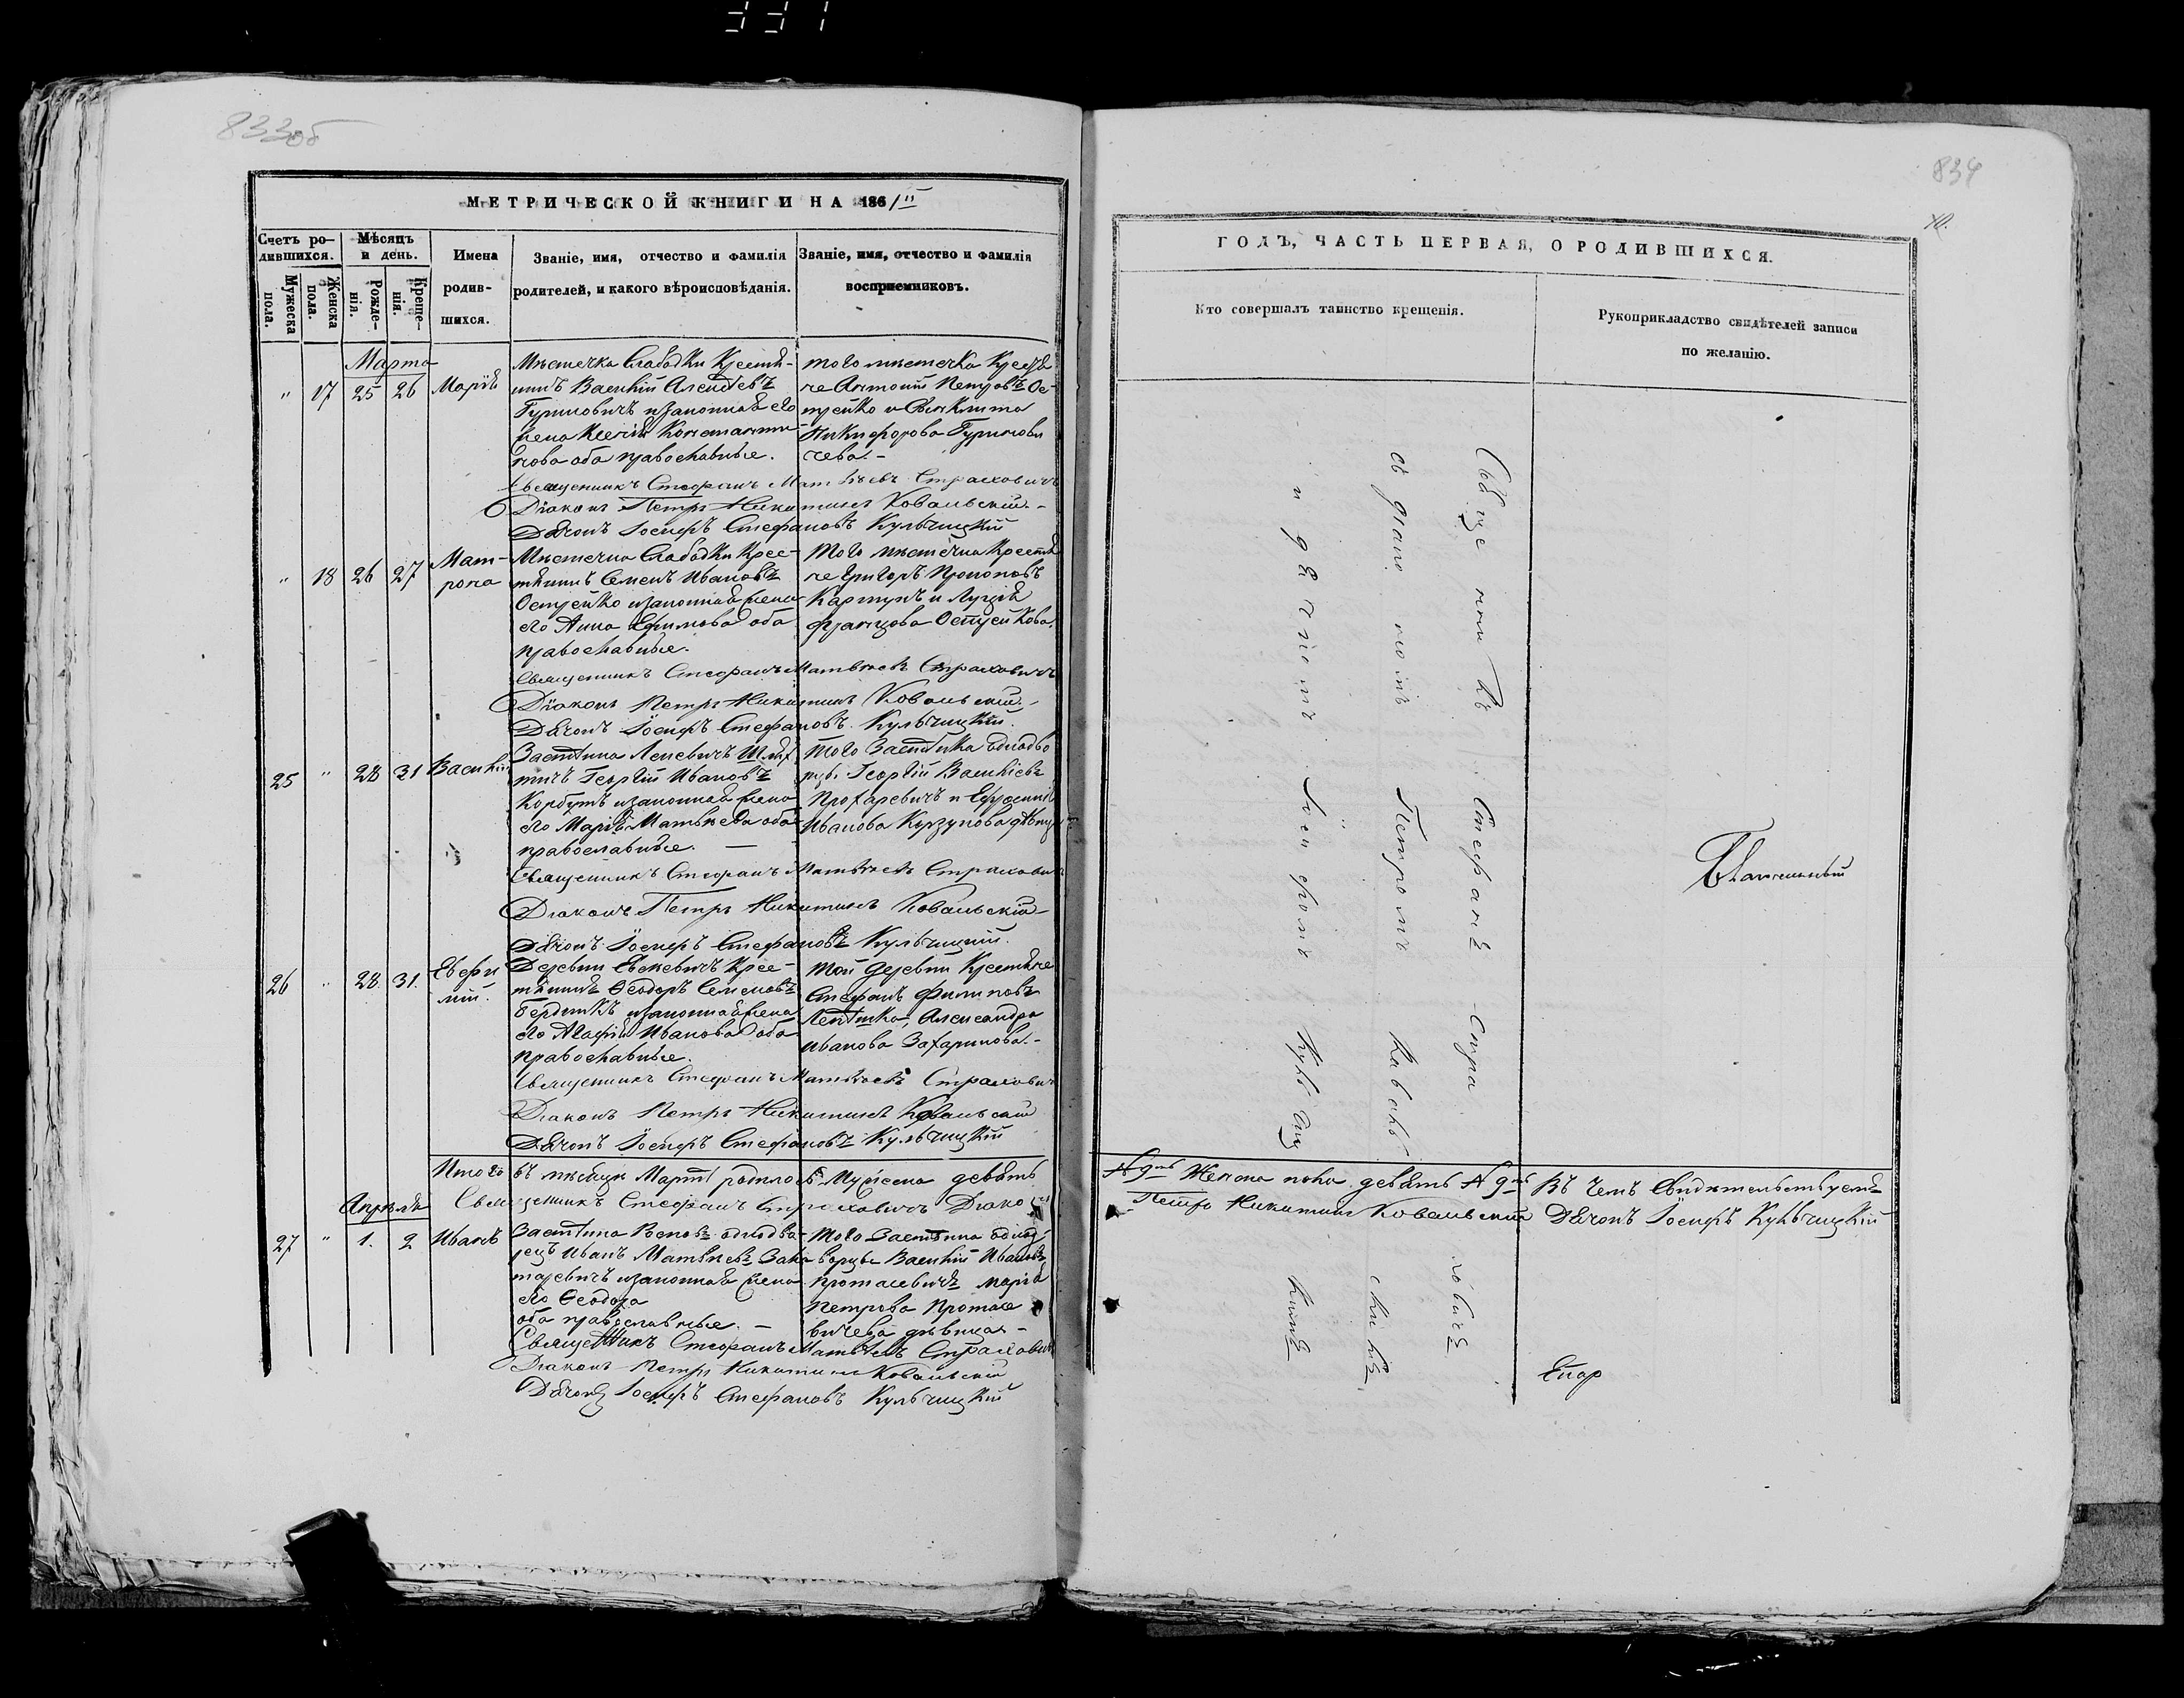 331
833об
МЕТРИЧЕСКОЙ КНИГИ НА 1861
Счетъ ро-
дившихся.
Мужеска
пола.
Женска
пола.
Мѣсяцъ
и день.
Рожде-
нія.
Креще-
нія.
Имена
родив-
шихся.
Званіе, имя, отчество и фамилія
родителей, и какого вѣроисповѣданія.
Званіе, имя, отчество и фамилія
воспріемниковъ.
Марта
" 17 25 26 Марія
Мѣстечка Слабодки Крестя-
нинъ Василій Алексѣевъ
Гуриновичъ и законная его
жена Ксенія Константи-
нова оба православные.
того мѣстечка Крестя
не Антоній Петровъ Ос-
трейко и
Никифорова Гуринови
чева.-
Священникъ Стефанъ Матвѣевъ Страховичъ
Діаконъ Петръ Никитинъ Ковальскій.-
Дьячокъ Іосифъ Стефановъ Кульчицкій
" 18 26 27 Мат-
рона
Мѣстечка Слабодки Крес-
тянинъ Семенъ Ивановъ
Острейко и законная жена
его Анна Ефимова оба
православные.
Того мѣстечка Крестя
не Григорь Прокоповъ
и Луція
Францова Острейкова.
Священникъ Стефанъ Матвѣевъ Страховичъ
Діаконъ Петръ Никитинъ Ковальскій.-
Дьячокъ Іосифъ Стефановъ Кульчицкій.
25 " 28 31 Василій
Застѣнка Шлях
тичъ Георгій Ивановъ
Корбутъ и законная жена
его Марія Матвѣева оба
православные. —
Того Застѣнка однодво
рцы Георгій Василіевъ
и Ефросинія
Иванова дѣвица
Священникъ Стефанъ Матвѣевъ Страхович
Діаконъ Петръ Никитинъ Ковальскій
Дьячокъ Іосифъ Стефановъ Кульчицкій.
26 " 28. 31. Евфи
мій.
Деревни Крес-
тянинъ Ѳеодоръ Семеновъ
и законная жена
его Агафія Иванова оба
православные.
той деревни Крестяне
Стефанъ Филиповъ
Александра
Иванова Захаринова.-
Священникъ Стефанъ Матвѣевъ Страхович
Діаконъ Петръ Никитинъ Ковальскій
Дьячокъ Іосифъ Стефановъ Кульчицкій
Итого въ мѣсяцѣ Мартѣ родилось Мужеска девять
Священникъ Стефанъ Страховичъ Діако
Апрѣля
27 " 1. 2 Иванъ
Застѣнка однодво-
рецъ Иванъ Матвѣевъ
и законная жена
его Ѳеодора
оба православные. —
Того Застѣнка одно-
ворцы Василій Ивановъ
Протасевичъ Марія
Петрова Протасе
вичева дѣвица-
Священникъ Стефанъ Матвѣевъ Страхович
Діаконъ Петръ Никитинъ Ковальскій
Дьячокъ Іосифъ Стефановъ Кульчицкій
834
10.
ГОДЪ, ЧАСТЬ ПЕРВАЯ, О РОДИВШИХСЯ.
Кто совершалъ таинство крещенія.
Рукоприкладство свидѣтелей записи
по желанію.
Священникъ Стефанъ Страховичъ
съ діакономъ Петромъ Ковальскимъ
и дьячкомъ Іосифомъ Кульчицкимъ
№ 9 Женска пола девять № 9 Въ чемъ свидѣтельствуемъ
Петръ Никитинъ Ковальскій Дьячокъ Іосифъ Кульчицкій